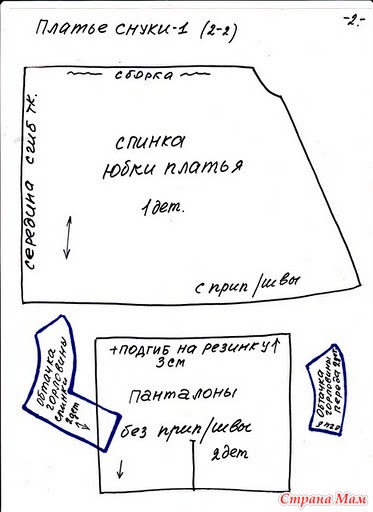 -2.-
Платье снуки-1 (2-2)
сборка
середина сгиб тк.
спинка
юбки платья
1дет.
с прип/швы
обтачка
горловины
спинки
2дет
+подгиб на резинку
3см
панталоны
без прип/швы
2дет
Обтачка
горловины
переда
Страна Мам